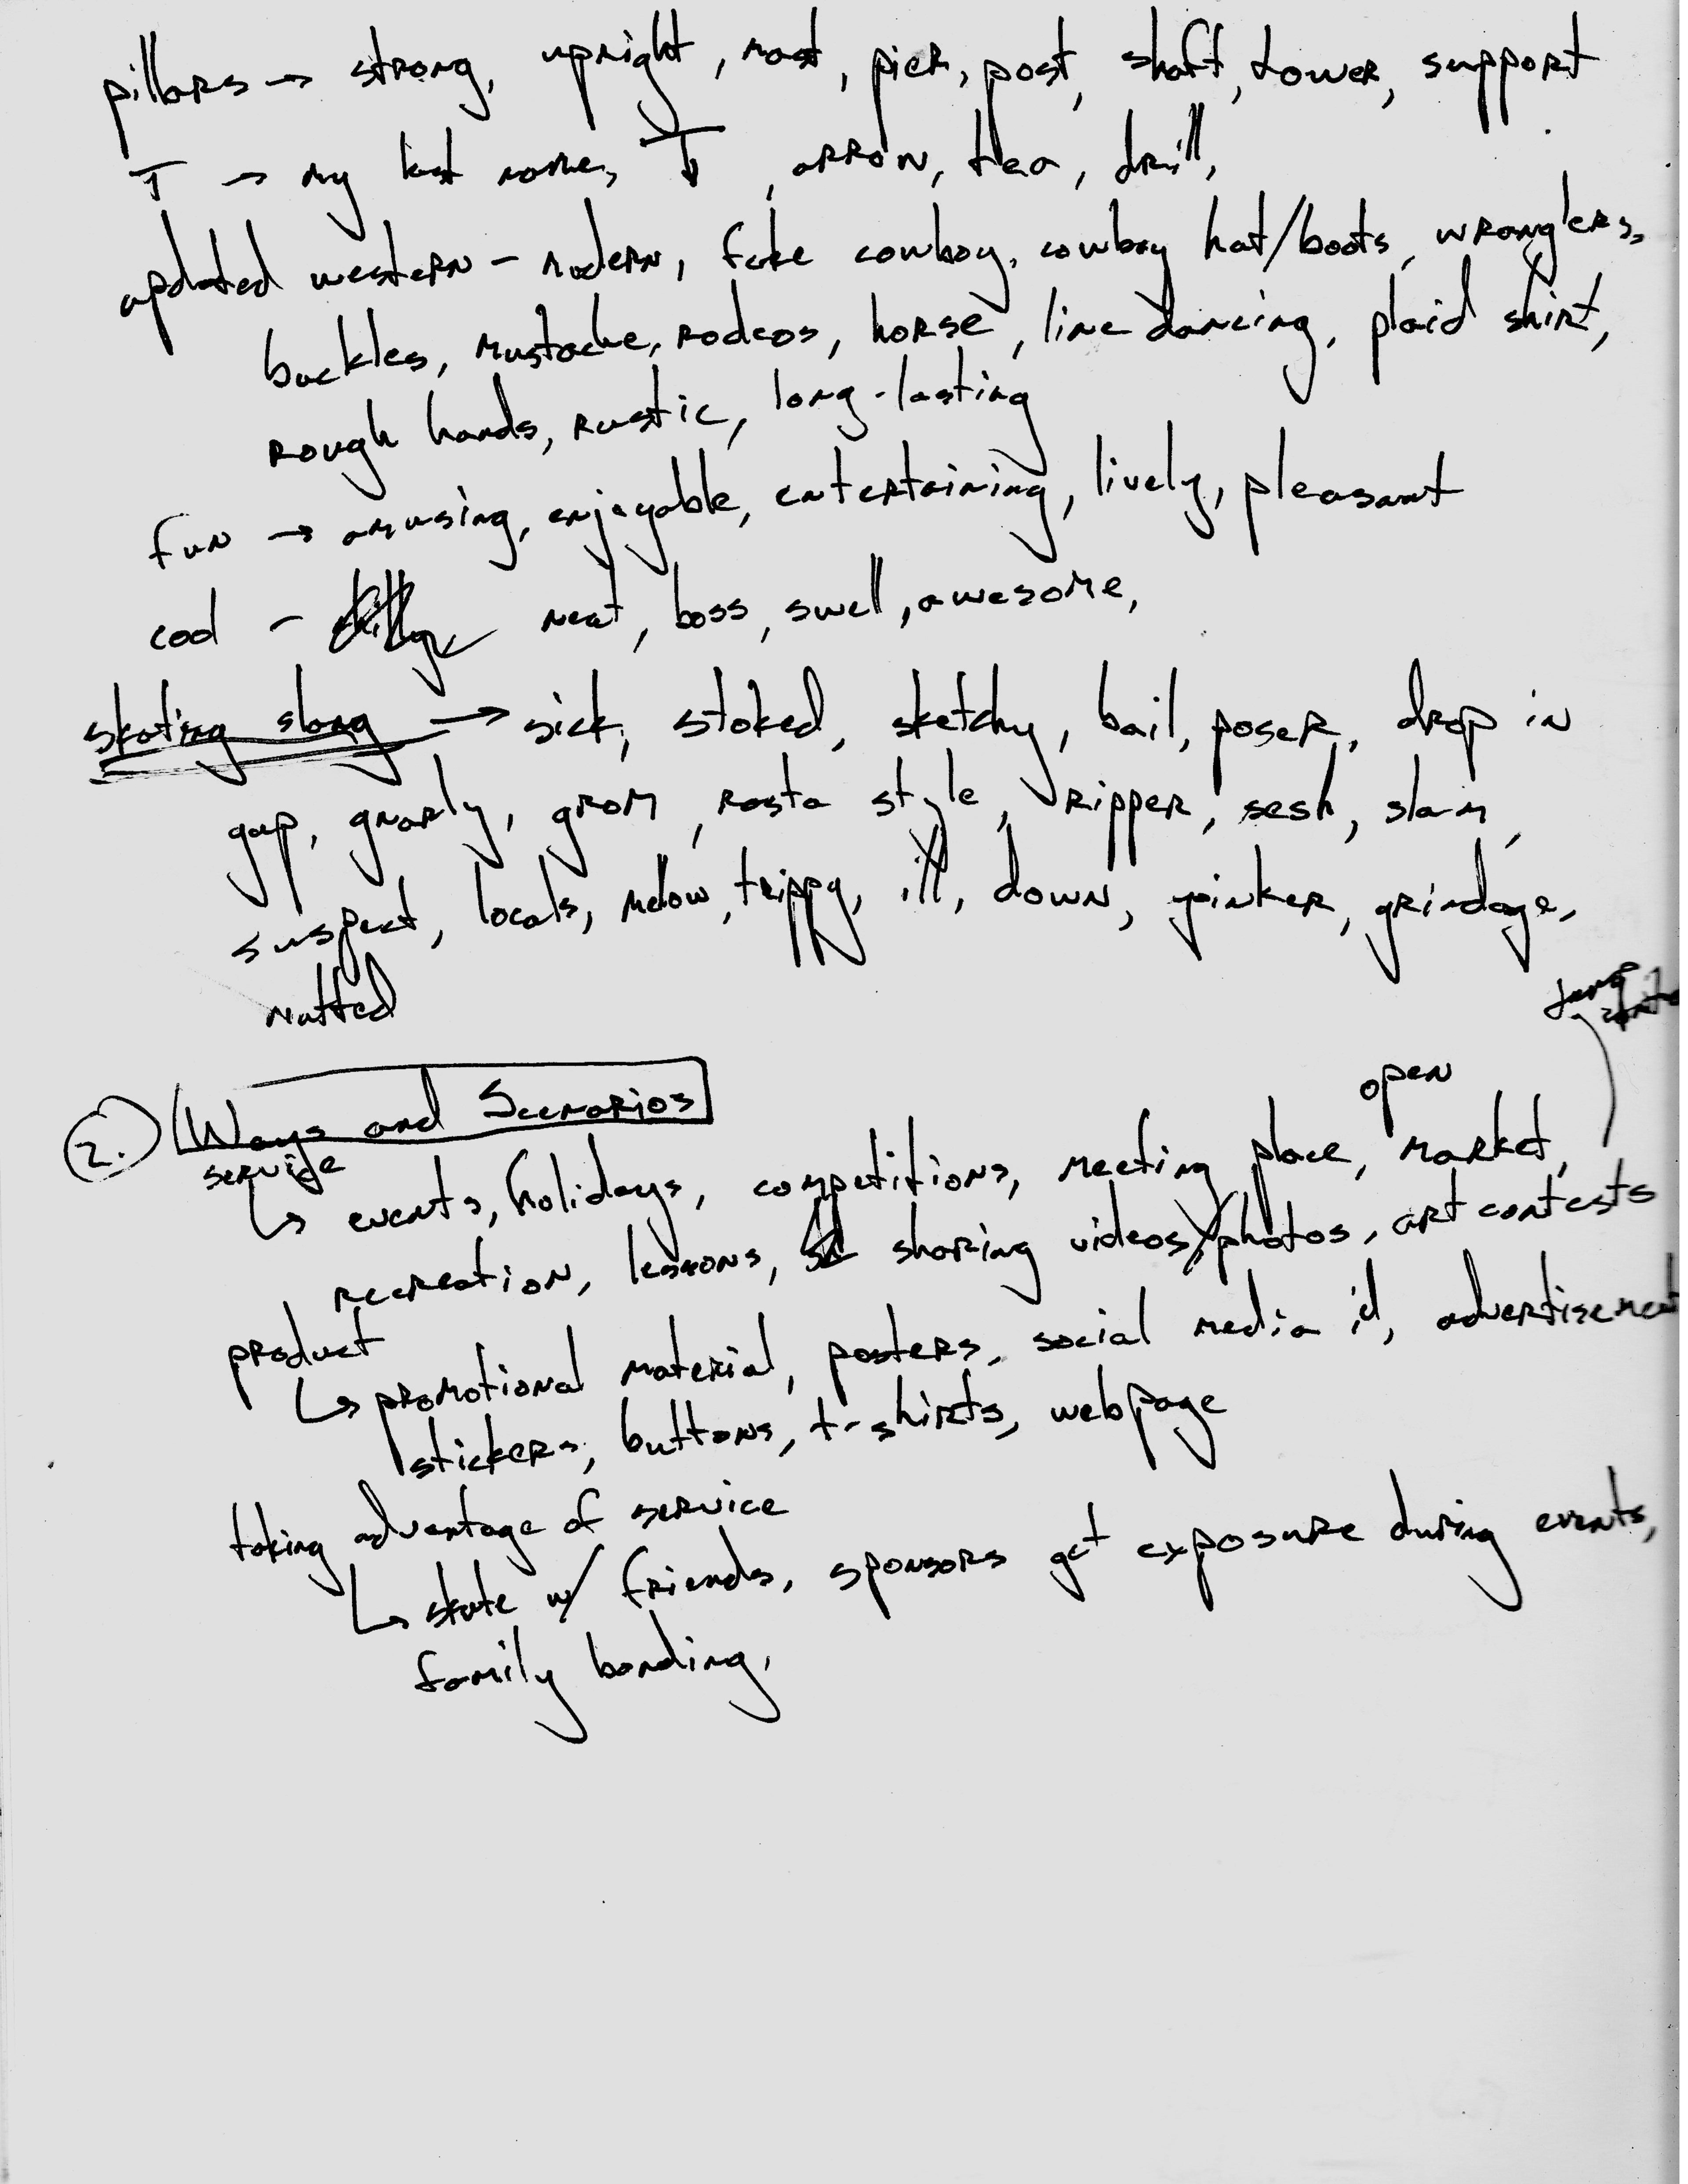 pillars → strong, upright, mast, pier, post, shaft, tower, support
T → my last name, T, arrow, tea, drill,
updated western - modern, fake cowboy, cowboy hat/boots, wranglers,
buckles, mustache, rodeos, horse, line dancing, plaid shirt,
rough hands, rustic, long-lasting
fun → amusing, enjoyable, entertaining, lively, pleasant
cool - neat, boss, swell, awesome,
skating slang → sick, stoked, sketchy, bail, poser, drop in
gap, gnarly, grom, rasta style, ripper, sesh, slam,
suspect, locals, mellow, trippy, ill, down, yoinker, grindage,
nutted
open
2. Ways and Scenarios
service
↳ events, holidays, competitions, meeting place, market,
recreation, lessons, sharing videos/photos, art contests
product
↳ promotional material, posters, social media id, advertisement
stickers, buttons, t-shirts, webpage
taking advantage of service
↳ skate w/ friends, sponsors get exposure during events,
family bonding,